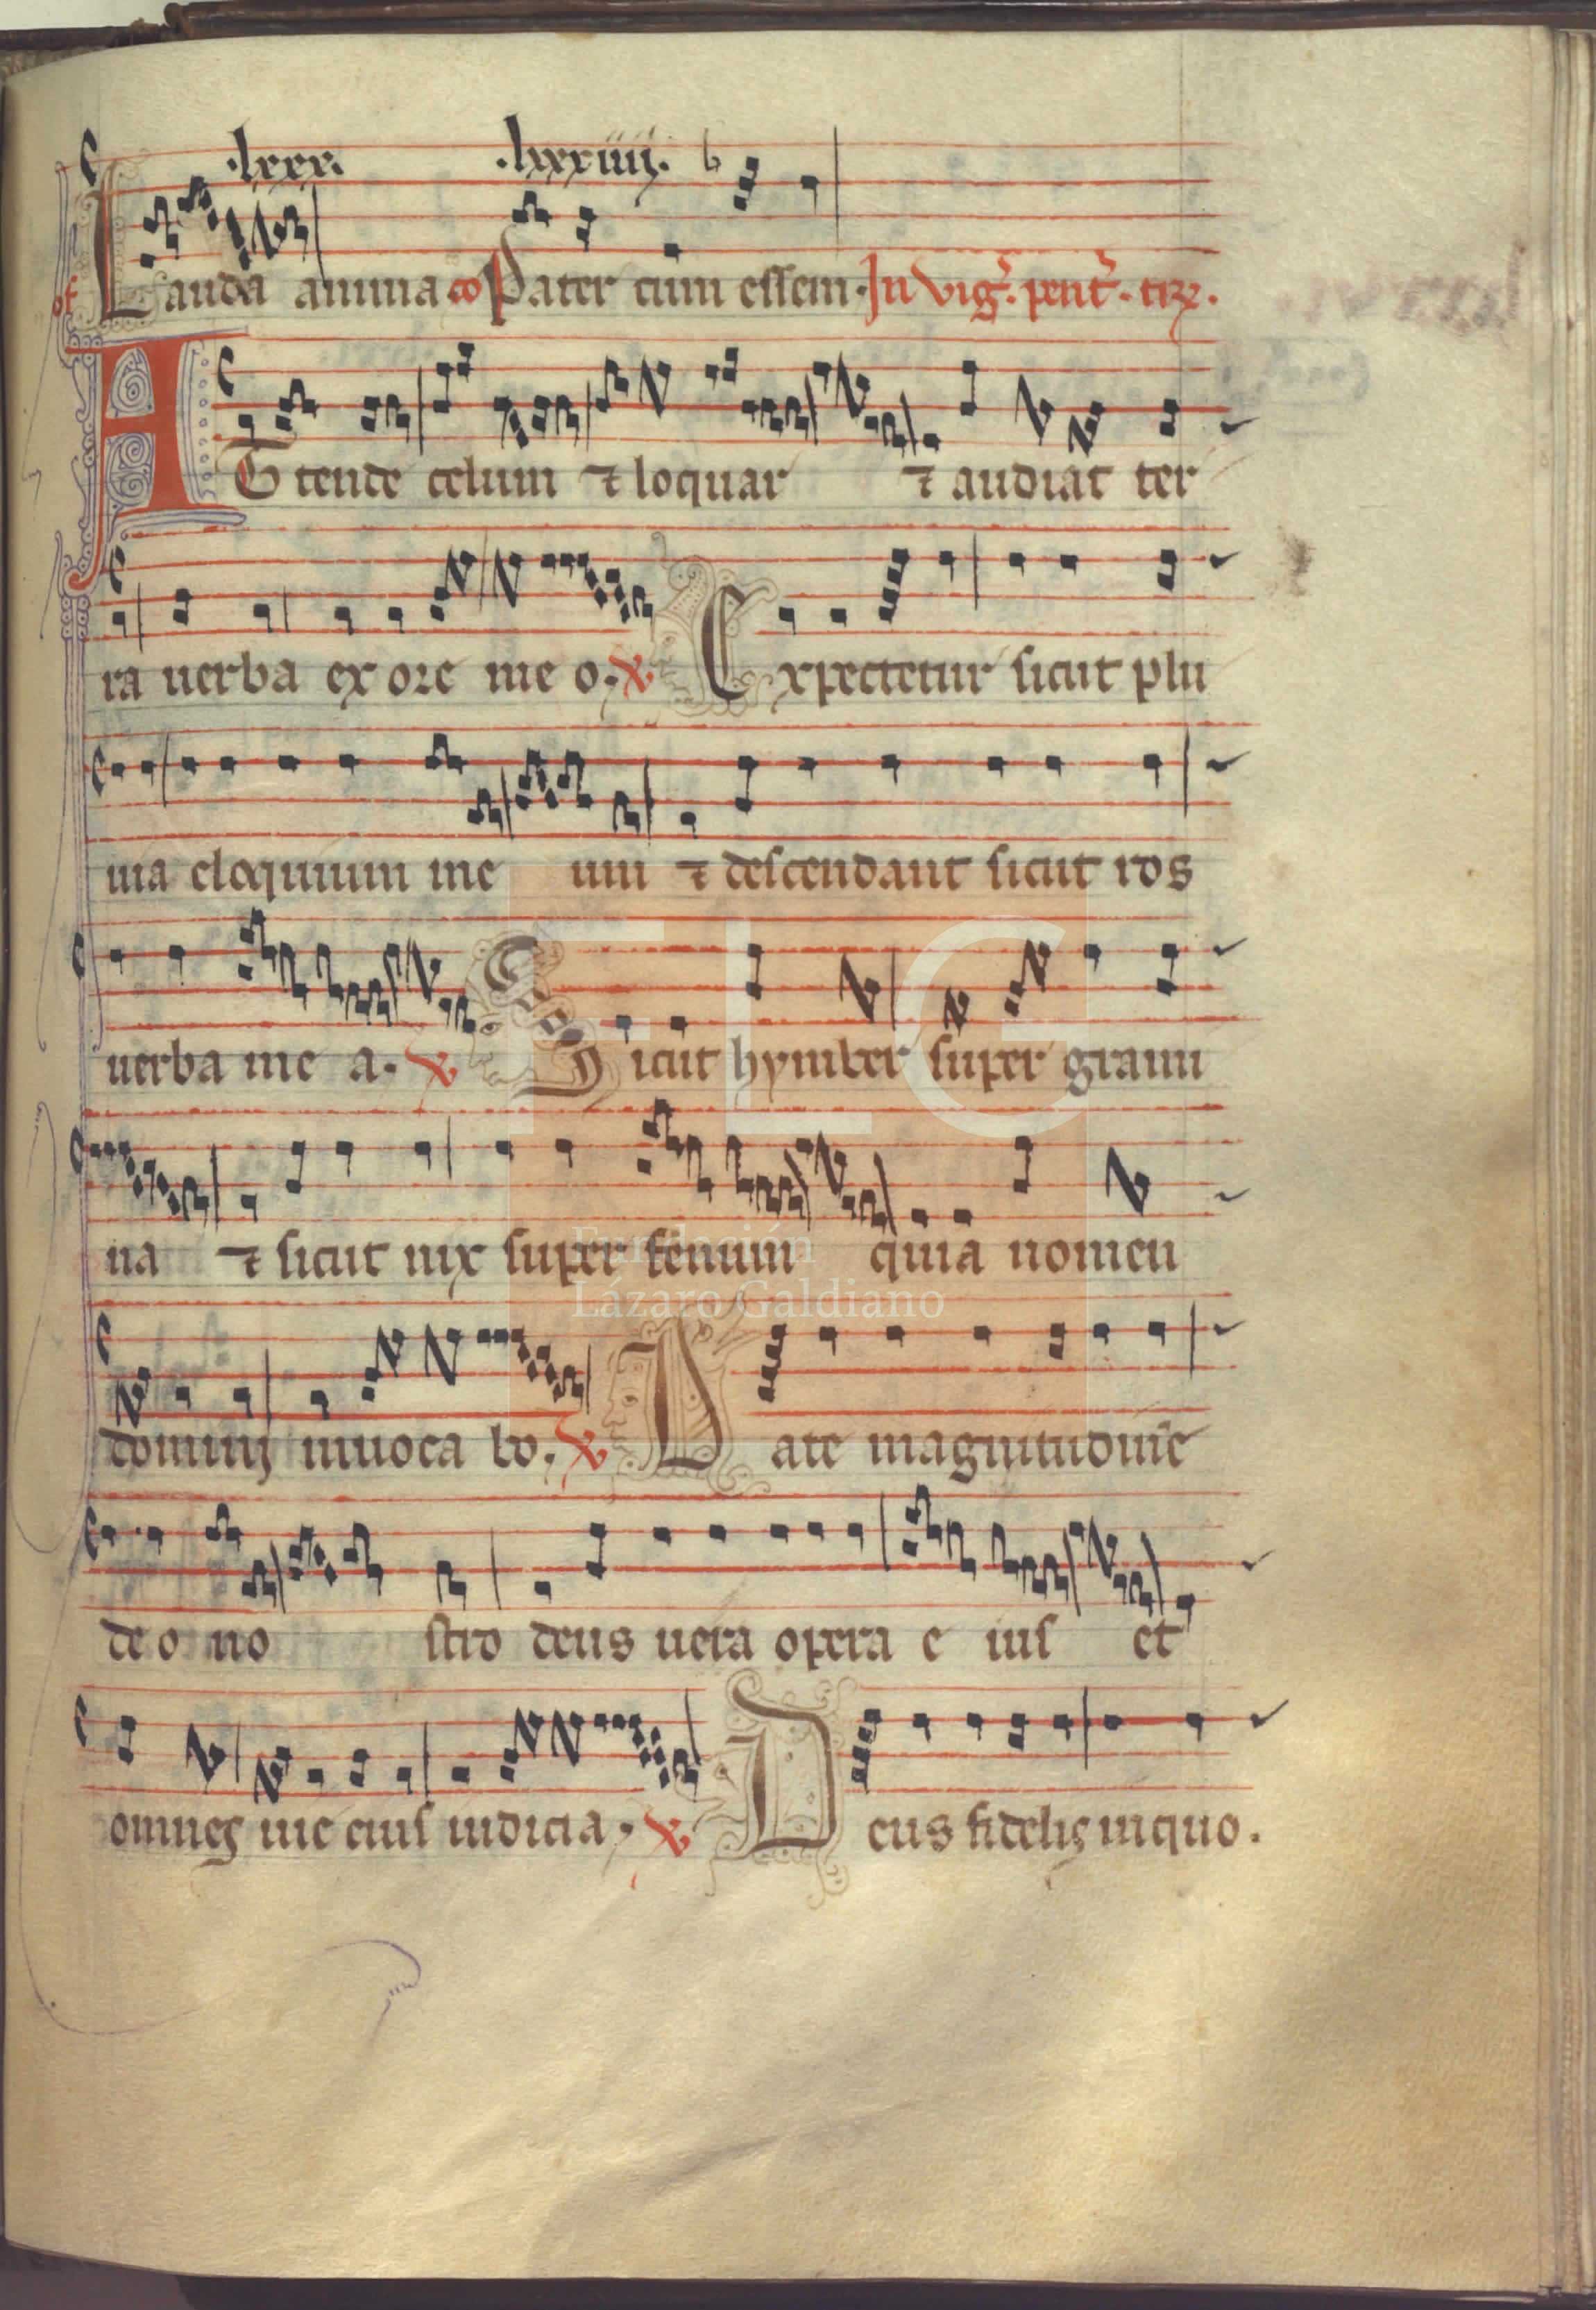 ·lxxx· ·lxxxiiii·
of Lauda anima co Pater cum essem· In vig̃. pent̃. trꝫ.
ATtende celum ⁊ loquar ⁊ audiat ter
ra uerba ex ore me o. ꝟ Expectetur sicut plu
uia eloquium me um ⁊ descendant sicut ros
uerba me a. ꝟ Sicut hymber super grami
na ⁊ sicut nix super fenum quia nomen
domini inuoca bo. ꝟ Date magnitudinē
de o no stro deus uera opera e ius et
omnes uie eius iudicia. ꝟ Deus fidelis inquo.
FLG
Fundación
Lázaro Galdiano